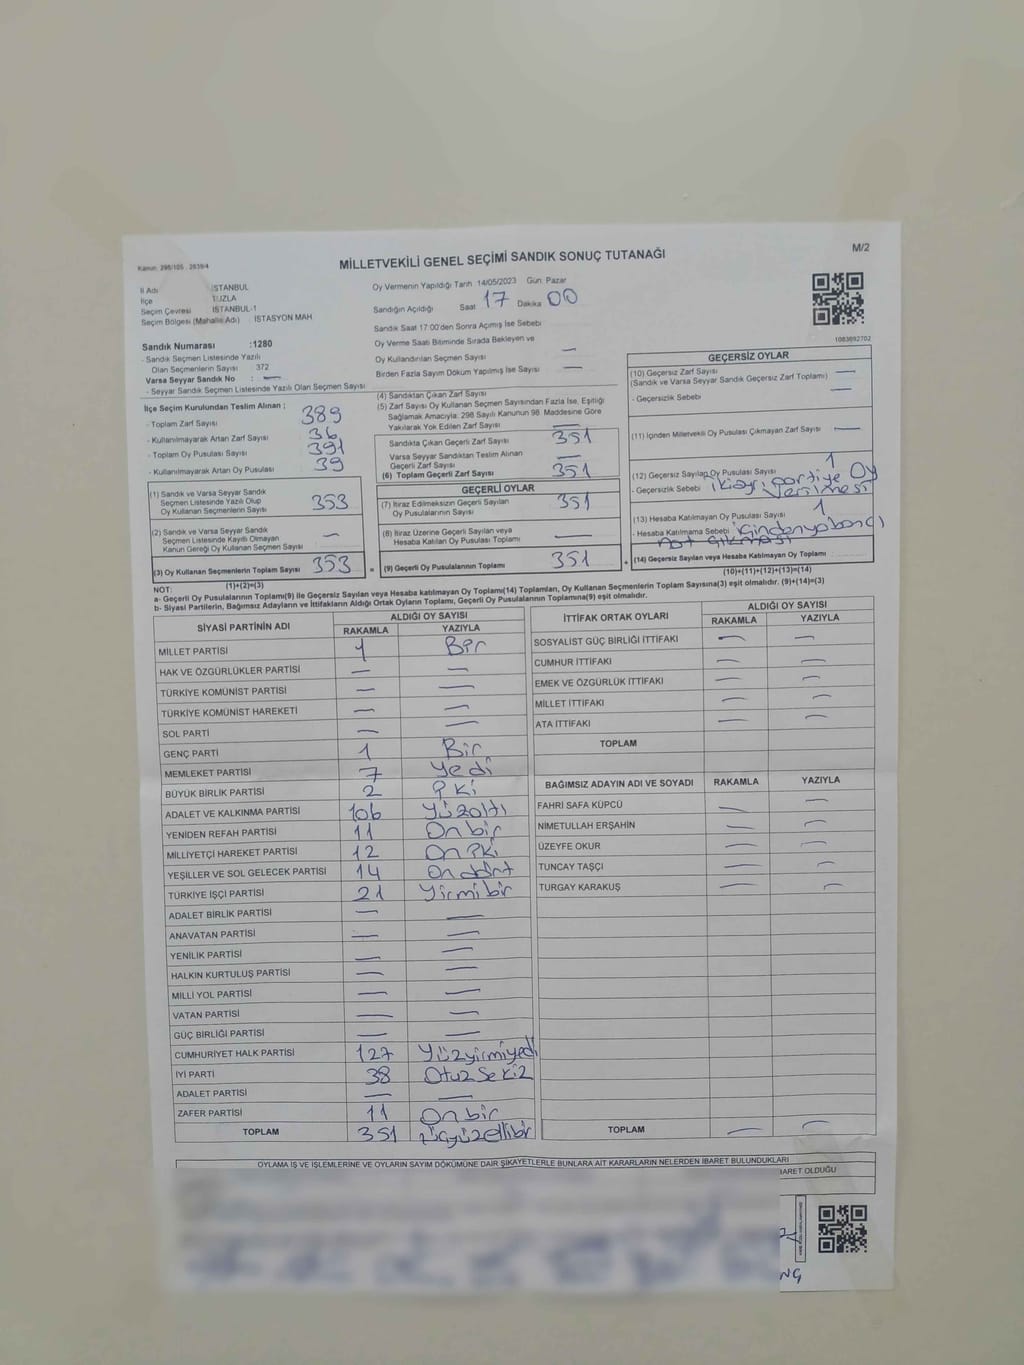 Kanun: 298/105 , 2839/4
MİLLETVEKİLİ GENEL SEÇİMİ SANDIK SONUÇ TUTANAĞI
M/2
İl Adı İSTANBUL
İlçe TUZLA
Seçim Çevresi İSTANBUL-1
Seçim Bölgesi (Mahalle Adı) : İSTASYON MAH
Oy Vermenin Yapıldığı Tarih 14/05/2023 Gün: Pazar
Sandığın Açıldığı Saat 17 Dakika 00
Sandık Saat 17:00'den Sonra Açımış İse Sebebi
Oy Verme Saati Bitiminde Sırada Bekleyen ve
Oy Kullandırılan Seçmen Sayısı —
Birden Fazla Sayım Döküm Yapılmış İse Sayısı —
1083692702
Sandık Numarası :1280
- Sandık Seçmen Listesinde Yazılı
Olan Seçmenlerin Sayısı 372
Varsa Seyyar Sandık No : —
- Seyyar Sandık Seçmen Listesinde Yazılı Olan Seçmen Sayısı
İlçe Seçim Kurulundan Teslim Alınan ;
- Toplam Zarf Sayısı 389
- Kullanılmayarak Artan Zarf Sayısı 36
- Toplam Oy Pusulası Sayısı 391
- Kullanılmayarak Artan Oy Pusulası 39
(1) Sandık ve Varsa Seyyar Sandık
Seçmen Listesinde Yazılı Olup
Oy Kullanan Seçmenlerin Sayısı 353
(2) Sandık ve Varsa Seyyar Sandık
Seçmen Listesinde Kayıtlı Olmayan
Kanun Gereği Oy Kullanan Seçmen Sayısı —
(3) Oy Kullanan Seçmenlerin Toplam Sayısı 353
(1)+(2)=(3)
(4) Sandıktan Çıkan Zarf Sayısı
(5) Zarf Sayısı Oy Kullanan Seçmen Sayısından Fazla İse, Eşitliği
Sağlamak Amacıyla; 298 Sayılı Kanunun 98. Maddesine Göre
Yakılarak Yok Edilen Zarf Sayısı —
Sandıkta Çıkan Geçerli Zarf Sayısı 351
Varsa Seyyar Sandıktan Teslim Alınan
Geçerli Zarf Sayısı
(6) Toplam Geçerli Zarf Sayısı 351
GEÇERLİ OYLAR
(7) İtiraz Edilmeksizin Geçerli Sayılan
Oy Pusulalarının Sayısı 351
(8) İtiraz Üzerine Geçerli Sayılan veya
Hesaba Katılan Oy Pusulası Toplamı —
= (9) Geçerli Oy Pusulalarının Toplamı 351 +
GEÇERSİZ OYLAR
(10) Geçersiz Zarf Sayısı —
(Sandık ve Varsa Seyyar Sandık Geçersiz Zarf Toplamı) —
- Geçersizlik Sebebi
(11) İçinden Milletvekili Oy Pusulası Çıkmayan Zarf Sayısı —
(12) Geçersiz Sayılan Oy Pusulası Sayısı 1
- Geçersizlik Sebebi iki ayrı partiye oy
verilmesi
(13) Hesaba Katılmayan Oy Pusulası Sayısı 1
- Hesaba Katılmama Sebebi içinden yabancı
not çıkması
(14) Geçersiz Sayılan veya Hesaba Katılmayan Oy Toplamı
(10)+(11)+(12)+(13)=(14)
NOT:
a- Geçerli Oy Pusulalarının Toplamı(9) ile Geçersiz Sayılan veya Hesaba katılmayan Oy Toplamı(14) Toplamları, Oy Kullanan Seçmenlerin Toplam Sayısına(3) eşit olmalıdır. (9)+(14)=(3)
b- Siyasi Partilerin, Bağımsız Adayların ve İttifakların Aldığı Ortak Oyların Toplamı, Geçerli Oy Pusulalarının Toplamına(9) eşit olmalıdır.
SİYASİ PARTİNİN ADI ALDIĞI OY SAYISI
RAKAMLA YAZIYLA
MİLLET PARTİSİ 1 Bir
HAK VE ÖZGÜRLÜKLER PARTİSİ — —
TÜRKİYE KOMÜNİST PARTİSİ — —
TÜRKİYE KOMÜNİST HAREKETİ — —
SOL PARTİ — —
GENÇ PARTİ 1 Bir
MEMLEKET PARTİSİ 7 Yedi
BÜYÜK BİRLİK PARTİSİ 2 İki
ADALET VE KALKINMA PARTİSİ 106 Yüzaltı
YENİDEN REFAH PARTİSİ 11 On bir
MİLLİYETÇİ HAREKET PARTİSİ 12 On iki
YEŞİLLER VE SOL GELECEK PARTİSİ 14 On dört
TÜRKİYE İŞÇİ PARTİSİ 21 Yirmi bir
ADALET BİRLİK PARTİSİ — —
ANAVATAN PARTİSİ — —
YENİLİK PARTİSİ — —
HALKIN KURTULUŞ PARTİSİ — —
MİLLİ YOL PARTİSİ — —
VATAN PARTİSİ — —
GÜÇ BİRLİĞİ PARTİSİ — —
CUMHURİYET HALK PARTİSİ 127 Yüzyirmiyedi
İYİ PARTİ 38 Otuz Sekiz
ADALET PARTİSİ — —
ZAFER PARTİSİ 11 On bir
TOPLAM 351 üçyüzellibir
İTTİFAK ORTAK OYLARI ALDIĞI OY SAYISI
RAKAMLA YAZIYLA
SOSYALİST GÜÇ BİRLİĞİ İTTİFAKI — —
CUMHUR İTTİFAKI — —
EMEK VE ÖZGÜRLÜK İTTİFAKI — —
MİLLET İTTİFAKI — —
ATA İTTİFAKI — —
TOPLAM
BAĞIMSIZ ADAYIN ADI VE SOYADI RAKAMLA YAZIYLA
FAHRİ SAFA KÜPCÜ — —
NİMETULLAH ERŞAHİN — —
ÜZEYFE OKUR — —
TUNCAY TAŞÇI — —
TURGAY KARAKUŞ — —
TOPLAM — —
OYLAMA İŞ VE İŞLEMLERİNE VE OYLARIN SAYIM DÖKÜMÜNE DAİR ŞİKAYETLERLE BUNLARA AİT KARARLARIN NELERDEN İBARET BULUNDUKLARI
BARET OLDUĞU